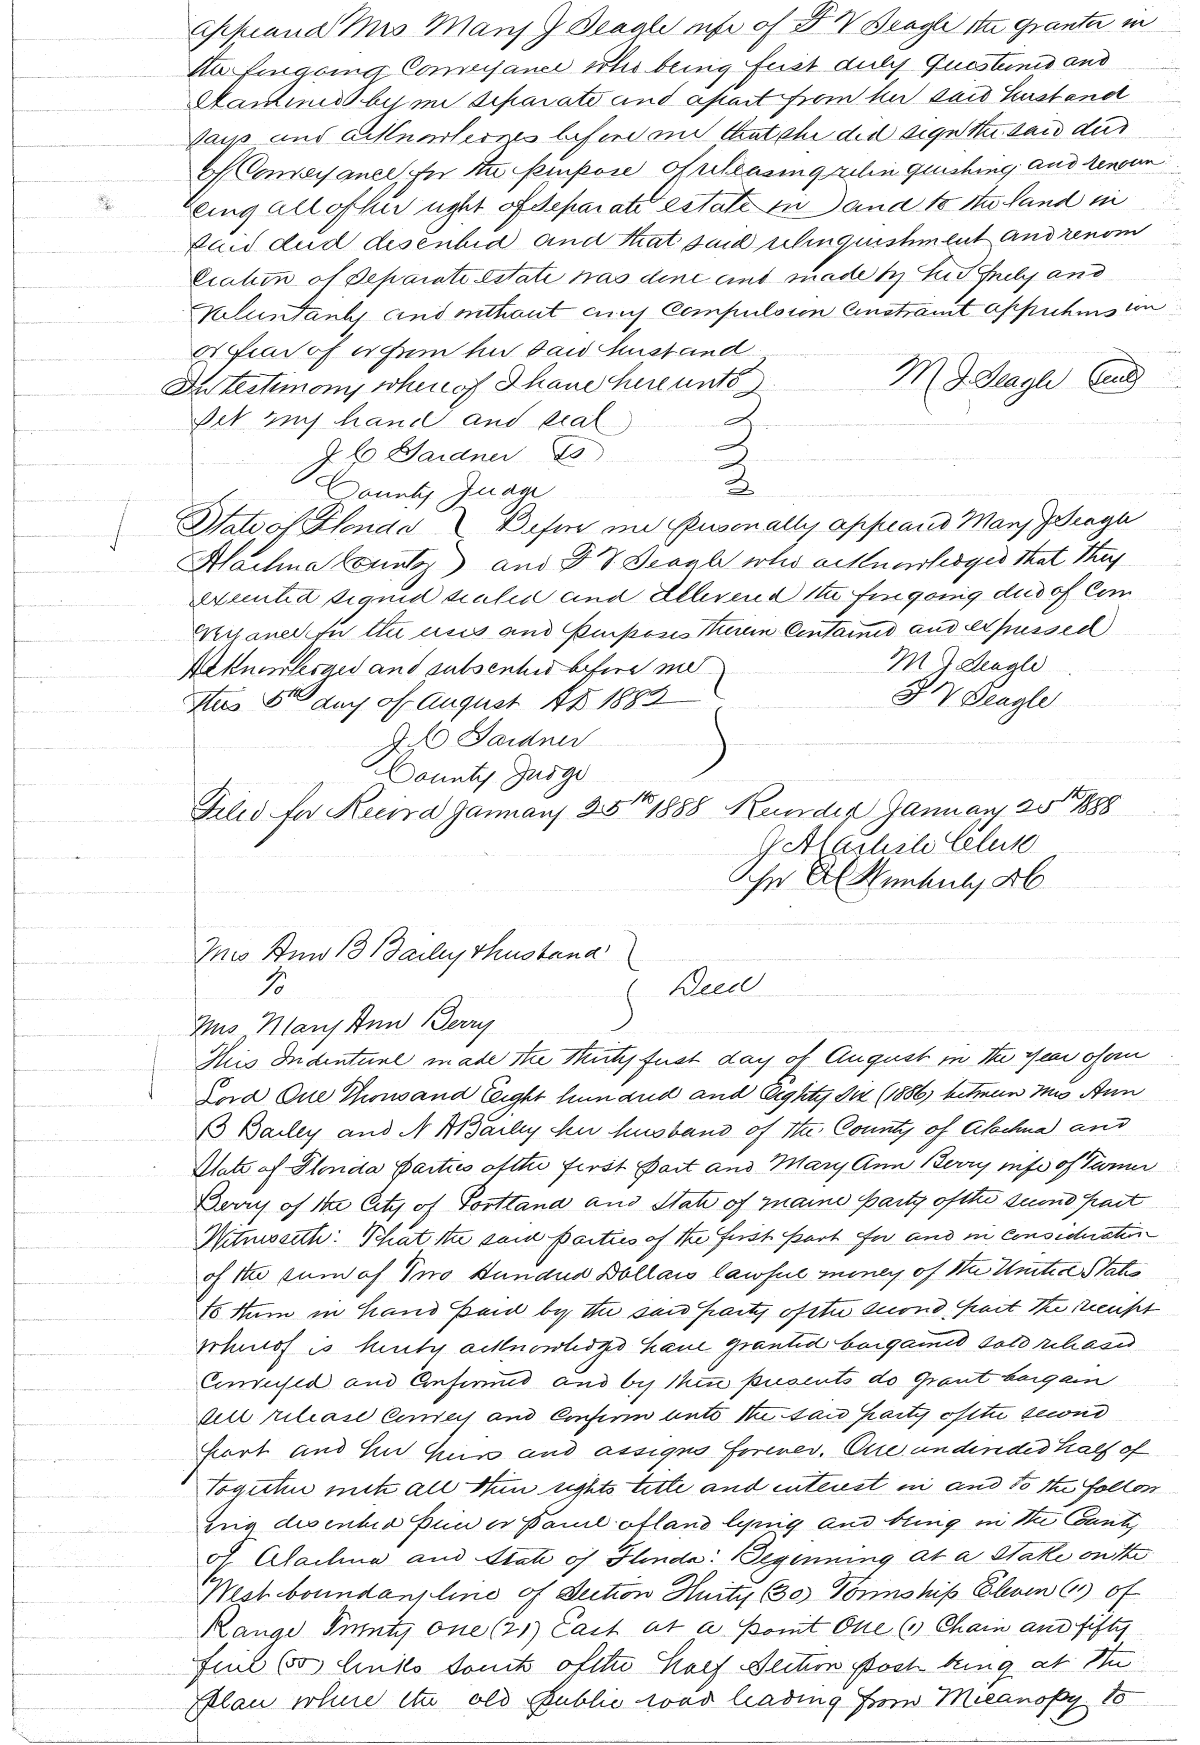 appeared Mrs Mary J Seagle wife of F V Seagle the grantor in
the foregoing Conveyance who being first duly Questioned and
Examined by me separate and apart from her said husband
says and acknowledges before me that she did sign the said deed
of Conveyance for the purpose of releasing relinquishing and renoun
cing all of her right of separate estate in and to the land in
said deed described and that said relinquishment and renon
ciation of separate estate was done and made by her freely and
voluntarily and without any Compulsion Constraint apprehension
or fear of or from her said husband
In testimony whereof I have hereunto M J Seagle Seal
set my hand and seal
J C Gardner LS
County Judge
State of Florida Before me personally appeared Mary J Seagle
Alachua County and F V Seagle who acknowledged that they
executed signed sealed and delivered the foregoing deed of Con
veyance for the uses and purposes therein Contained and expressed
Acknowledged and subscribed before me M J Seagle
this 5th day of August AD 1882 F V Seagle
J C Gardner
County Judge
Filed for Record January 25th 1888 Recorded January 25th 1888
J A Carlisle Clerk
Per DC
Mrs Ann B Bailey & husband
To Deed
Mrs Mary Ann Berry
This Indenture made the thirty first day of August in the year of our
Lord One Thousand Eight hundred and Eighty Six (1886) between Mrs Ann
B Bailey and N A Bailey her husband of the County of Alachua and
State of Florida parties of the first part and Mary Ann Berry wife of Turner
Berry of the City of Portland and State of Maine party of the second part
Witnesseth: That the said parties of the first part for and in consideration
of the sum of Two Hundred Dollars lawful money of the United States
to them in hand paid by the said party of the second part the receipt
whereof is hereby acknowledged have granted bargained sold released
Conveyed and Confirmed and by these presents do grant bargain
sell release Convey and Confirm unto the said party of the second
part and her heirs and assigns forever. One undivided half of
together with all their rights title and interest in and to the follow
ing described piece or parcel of land lying and being in the County
of Alachua and State of Florida: Beginning at a stake on the
West boundary line of Section Thirty (30) Township Eleven (11) of
Range Twenty one (21) East at a point One (1) Chain and fifty
five (55) links South of the half Section post being at the
place where the old public road leading from Micanopy to